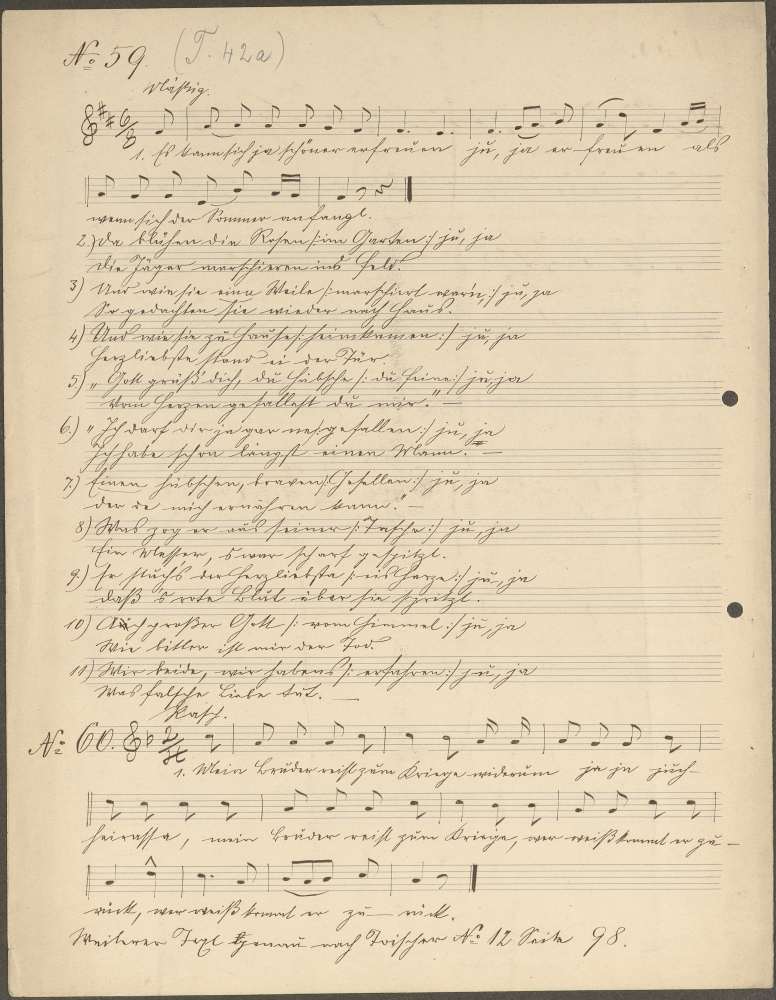 No 59. (T. 42a)
Mäßig.
1. Es kann sich ja schöner erfreuen ju, ja er-freuen als
wenn sich der Sommer anfangt.
2.) Da blühen die Rosen /: im Garten :/ ju, ja
die Jäger marschieren ins Feld.
3) Und wie sie eine Weile /: marschiert war'n :/ ju, ja
So gedachten sie wieder nach Haus.
4) Und wie sie zu Hause /: heimkamen :/ ju, ja
Herzliebste stand ei der Tür.
5.) „Gott grüß' dich, du hübsche /: du feine :/ ju, ja
Vom Herzen gefallest du mir." —
6.) „Ich darf dir ja gar net /: gefallen :/ ju, ja
Ich habe schon längst einen Mann. —
7.) Einen hübschen, braven /: Gesellen :/ ju, ja
der de mich ernähren kann." —
8.) Was zog er aus seiner /: Tasche :/ ju, ja
Ein Messer, s war scharf gespitzt.
9.) Er stach's der Herzliebsta /: eis Herze :/ ju, ja
daß s rote Blut über sie spritzt.
10) Ach großer Gott /: vom Himmel :/ ju, ja
Wie bitter ist mir der Tod.
11) Wir beide, wir habens /: erfahren :/ ju, ja
Was falsche Liebe tut. —
Rasch.
No 60. 1. Mein Bruder reist zum Kriege widerum ja ja juch-
heirassa, mein Bruder reist zum Kriege, wer weiß kommt er zu-
rück, wer weiß kommt er zu-rück.
Weiterer Text genau nach Toischer No 12 Seite 98.